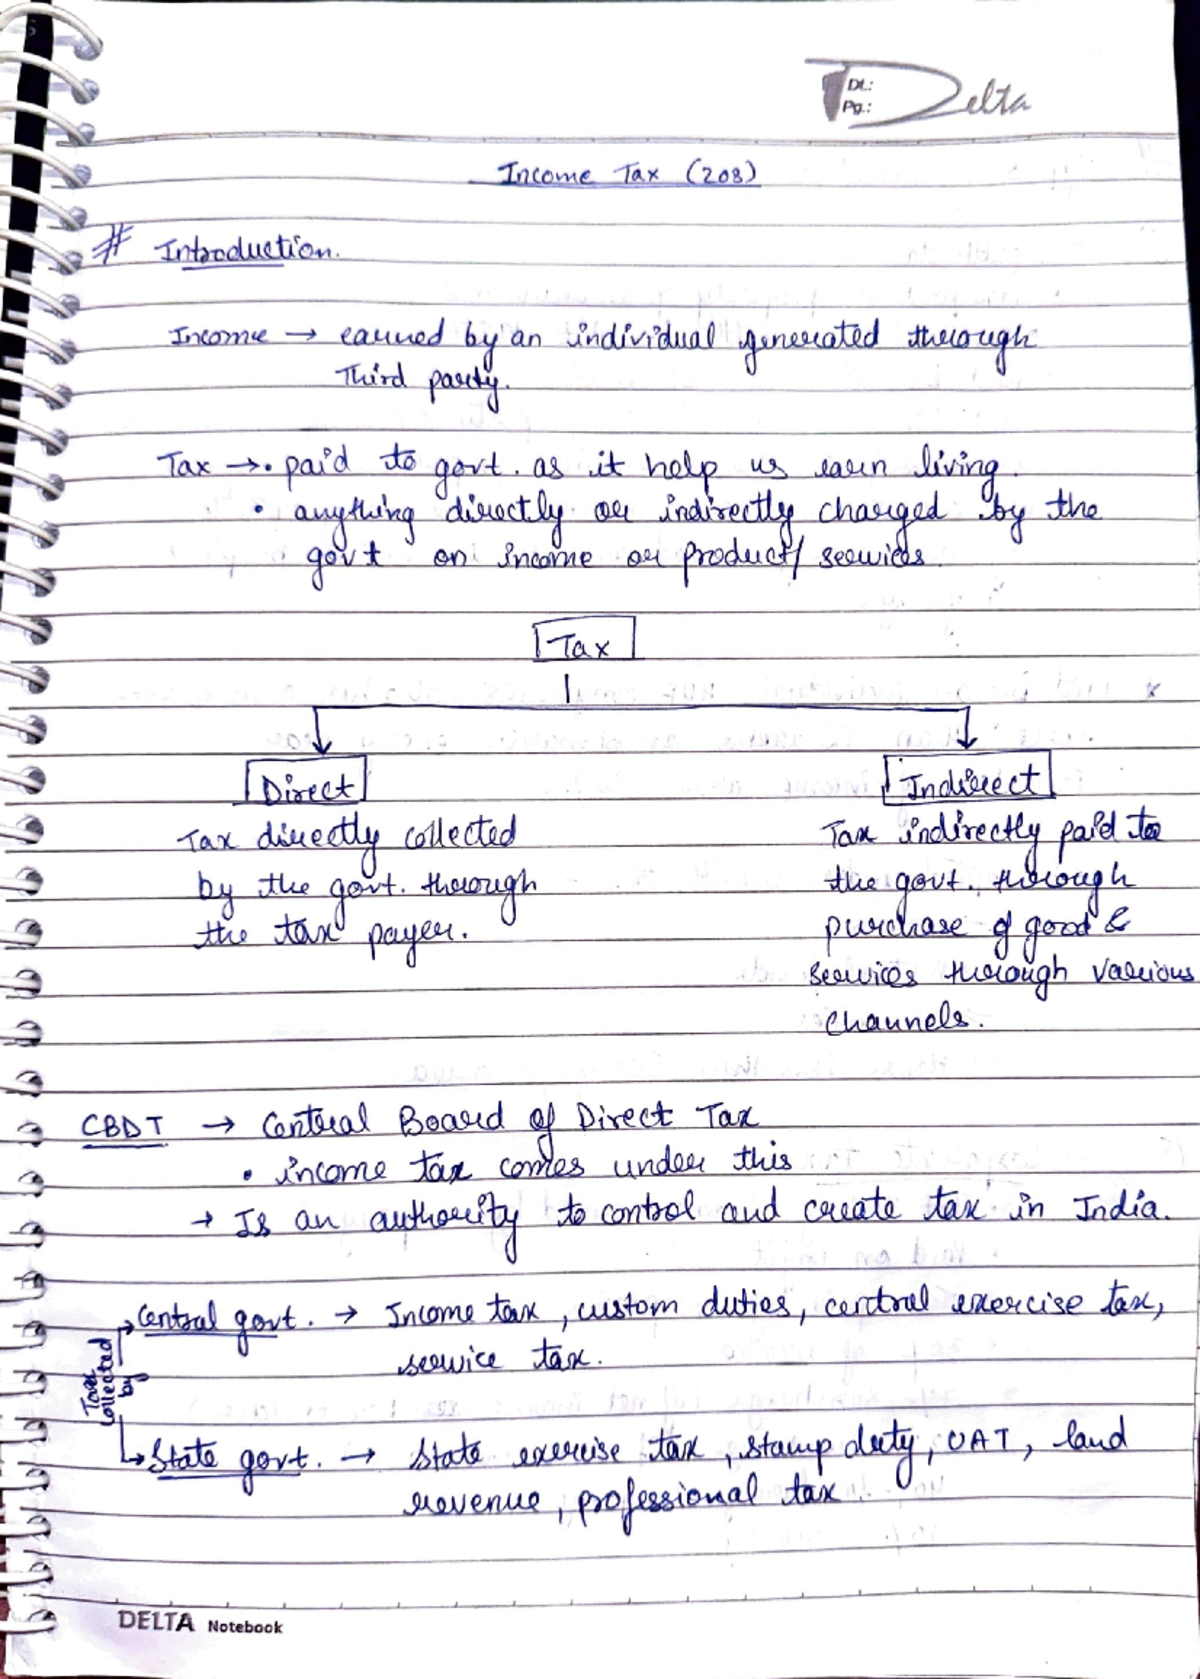 Dt.:
Pg.:
Delta
Income Tax (208)
# Introduction.
Income → earned by an individual generated through
Third party.
Tax → • paid to govt. as it help us earn living.
• anything directly or indirectly charged by the
govt on income or product/ services.
Tax
Direct
Tax directly collected
by the govt. through
the tax payer.
Indirect
Tax indirectly paid to
the govt. through
purchase of good &
services through various
channels.
CBDT → Central Board of Direct Tax
• income tax comes under this
→ Is an authority to control and create tax in India.
Taxes collected by
→ Central govt. → Income tax, custom duties, central exercise tax,
service tax.
→ State govt. → State exercise tax, stamp duty, VAT, land
revenue, professional tax.
DELTA Notebook